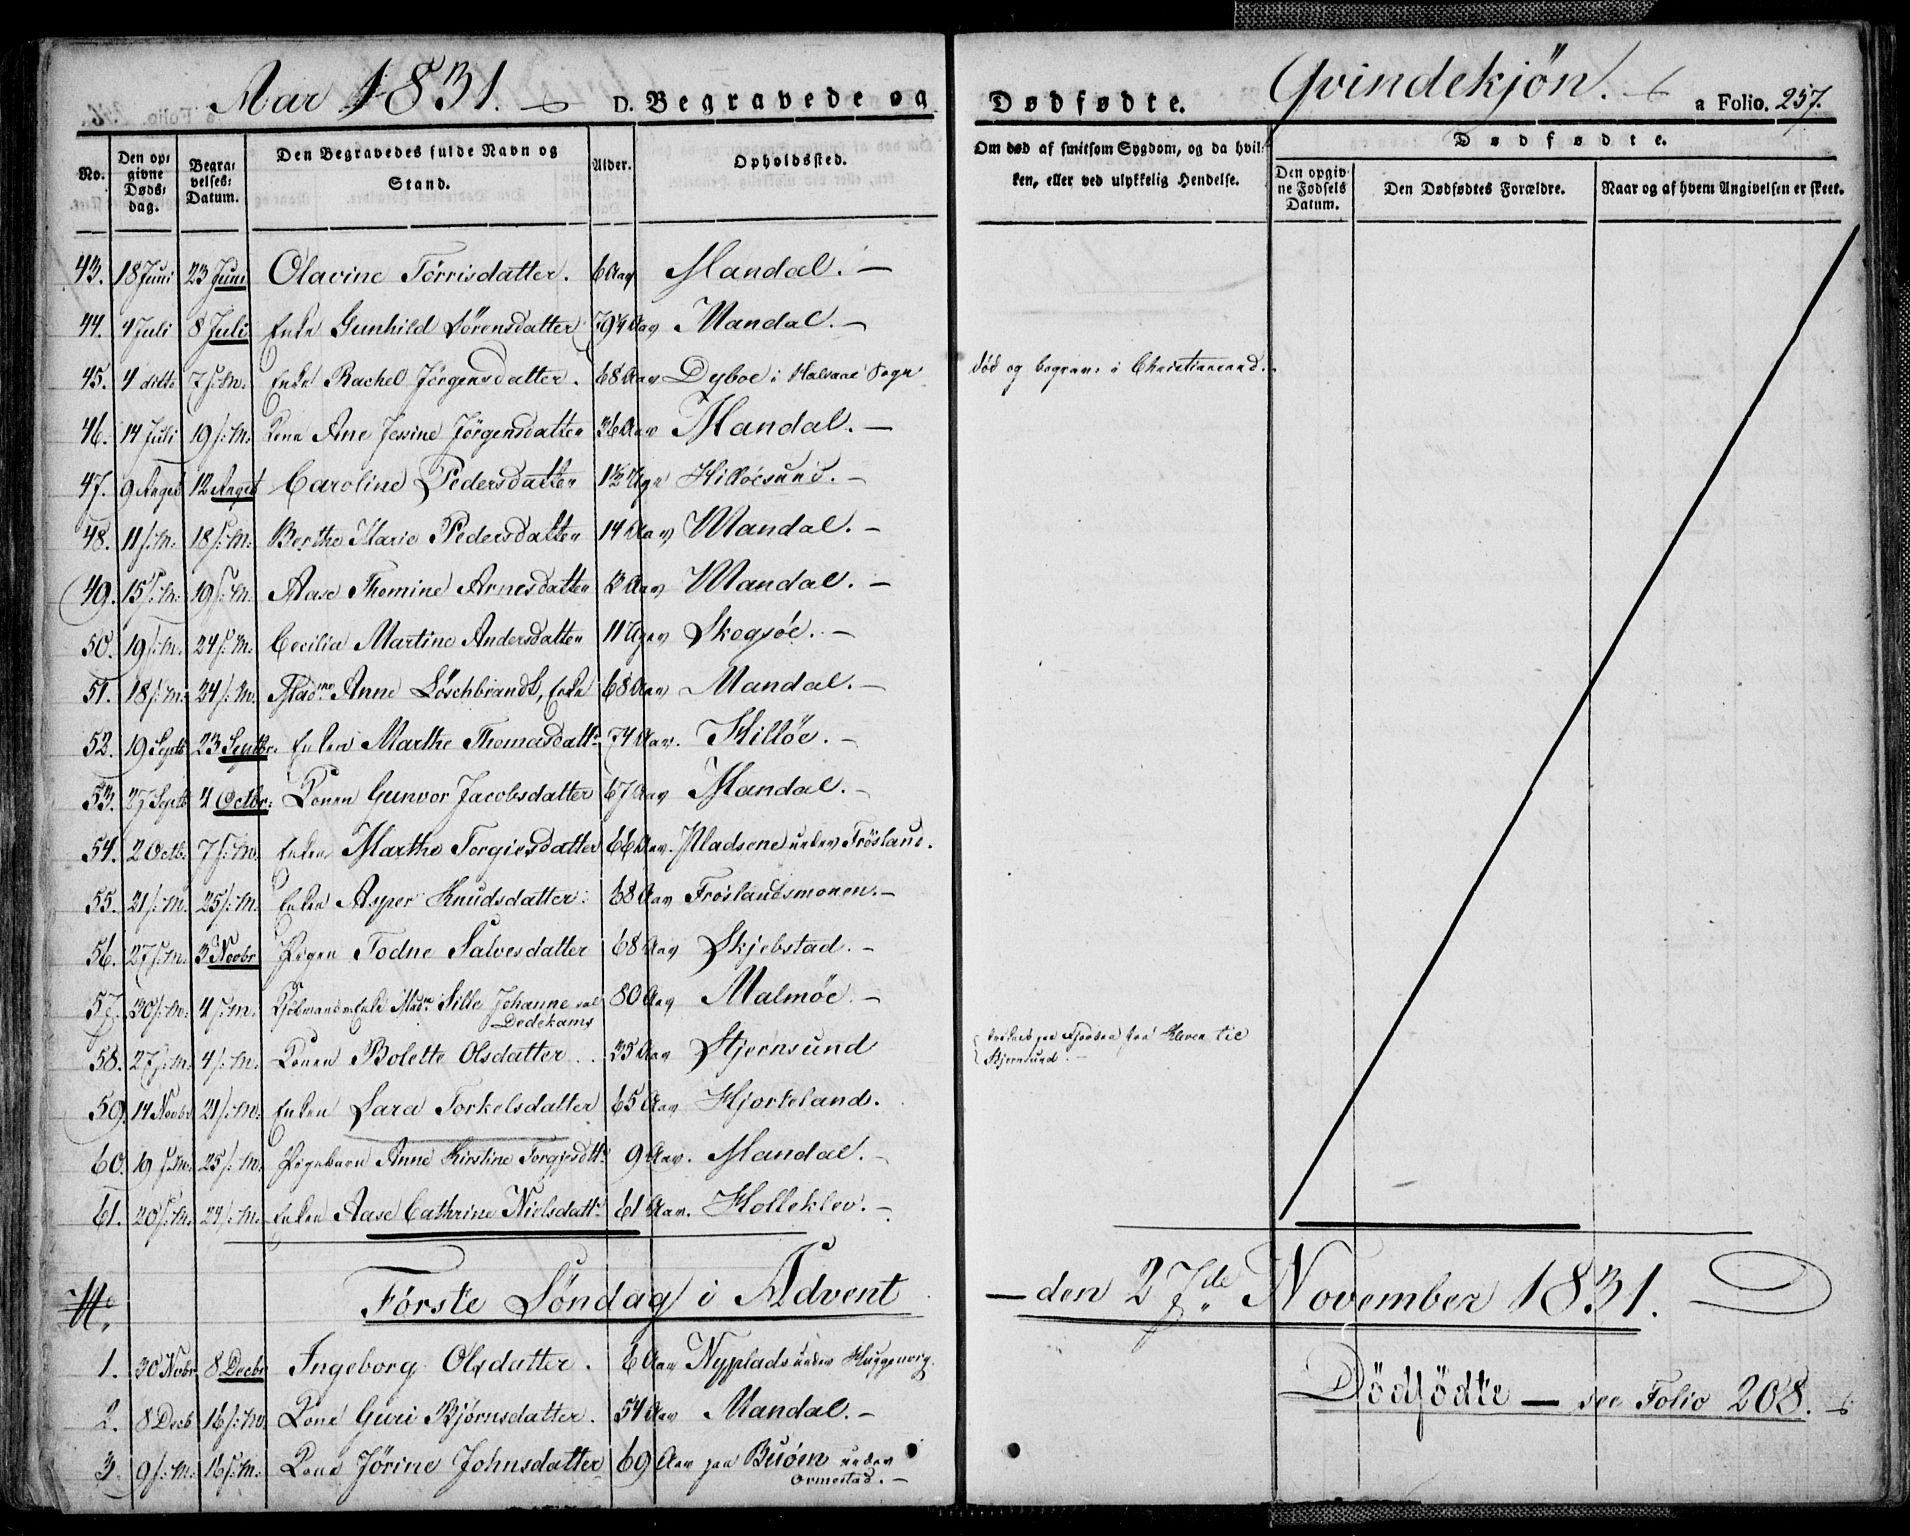 Aar 1831. D. Begravede og Dødfødte. Qvindekjön. a Folio. 257.
No. Den opgivne Dødsdag. Begravelses-Datum. Den Begravedes fulde Navn og Stand. Alder. Opholdssted. Om død af smitsom Sygdom, og da hvilken, eller ved ulykkelig Hendelse. Dødfødte.
Den opgivne Fødsels Datum. Den Dødfødtes Forældre. Naar og af hvem Angivelsen er skeet.
43. 18 Juni 23 Juni Olavine Törrisdatter. 6 Aar Mandal. —
44. 4 Juli 8 Juli Enke Gunhild Sörensdatter 79¼ Aar Mandal. —
45. 4 dito 7 s: M. Enke Rachel Jörgensdatter. 68 Aar Dyboe i Halsaae Sogn död og begrav: i Christiansand.
46. 14 Juli 19 s: M. Kone Ane Jessine Jörgensdatter 36 Aar Mandal. —
47. 9 Augst 12 Augst Caroline Pedersdatter 1½ Uge Hillöesund. —
48. 11 s: M. 18 s: M. Berthe Marie Pedersdatter 14 Aar Mandal. —
49. 15 s: M. 19 s: M. Aase Thomine Arnesdatter Aar Mandal. —
50. 19 s: M. 24 s: M. Cecilia Martine Andersdatter 11 Uger Skogsöe. —
51. 18 s: M. 24 s: M. Madme Anne Löschbrandt, Enke 68 Aar Mandal. —
52. 19 Septb 23 Septbr. Enken Marthe Thomasdattr 74 Aar. Hillöe. —
53. 27 Septb 4 Octbr. Konen Gunvor Jacobsdatter 67 Aar Mandal. —
54. 2 Octb. 7 s: M. Enken Marthe Torgiersdatter 66 Aar. Pladsene under Frösland.
55. 21 s: M. 25 s: M. Enken Asper Knudsdatter. 68 Aar Froslandsmonen. —
56. 27 s: M. 3 Novbr Pigen Todne Salvesdatter 68 Aar Skjebstad. —
57. 30 s: M. 4 s: M. Kjöbmands Enke Madme Sille Johanne sal Dedekams 80 Aar Malmöe. —
58. 27 s: M. 4 s: M. Konen Bolette Olsdatter. 35 Aar Stjernsund paa Fjorden fra Kleven til Skjernsund. —
59. 14 Novbr 21 s: M. Enken Sara Torkelsdatter 65 Aar Hjorteland.
60. 19 s: M. 25 s: M. Pigebarn Anne Kirstine Torgjesdtt. 9 Aar. Mandal. —
61. 20 s: M. 24 s: M. Enken Aase Cathrine Nielsdattr 61 Aar. Holleklev. —
Förste Söndag i Advent — den 27de November 1831.
1. 30 Novbr 8 Decbr Ingeborg Olsdatter. 6 Aar Nyplads under Huggenvig.
2. 8 Decb 16 s: M. Kone Guri Björnsdatter. 54 Aar Mandal. —
3. 9 s: M. 16 s: M. Kone Jörine Johnsdatter 69 Aar paa Buöen under Ormestad. —
Dödfödte — see Folio 208.